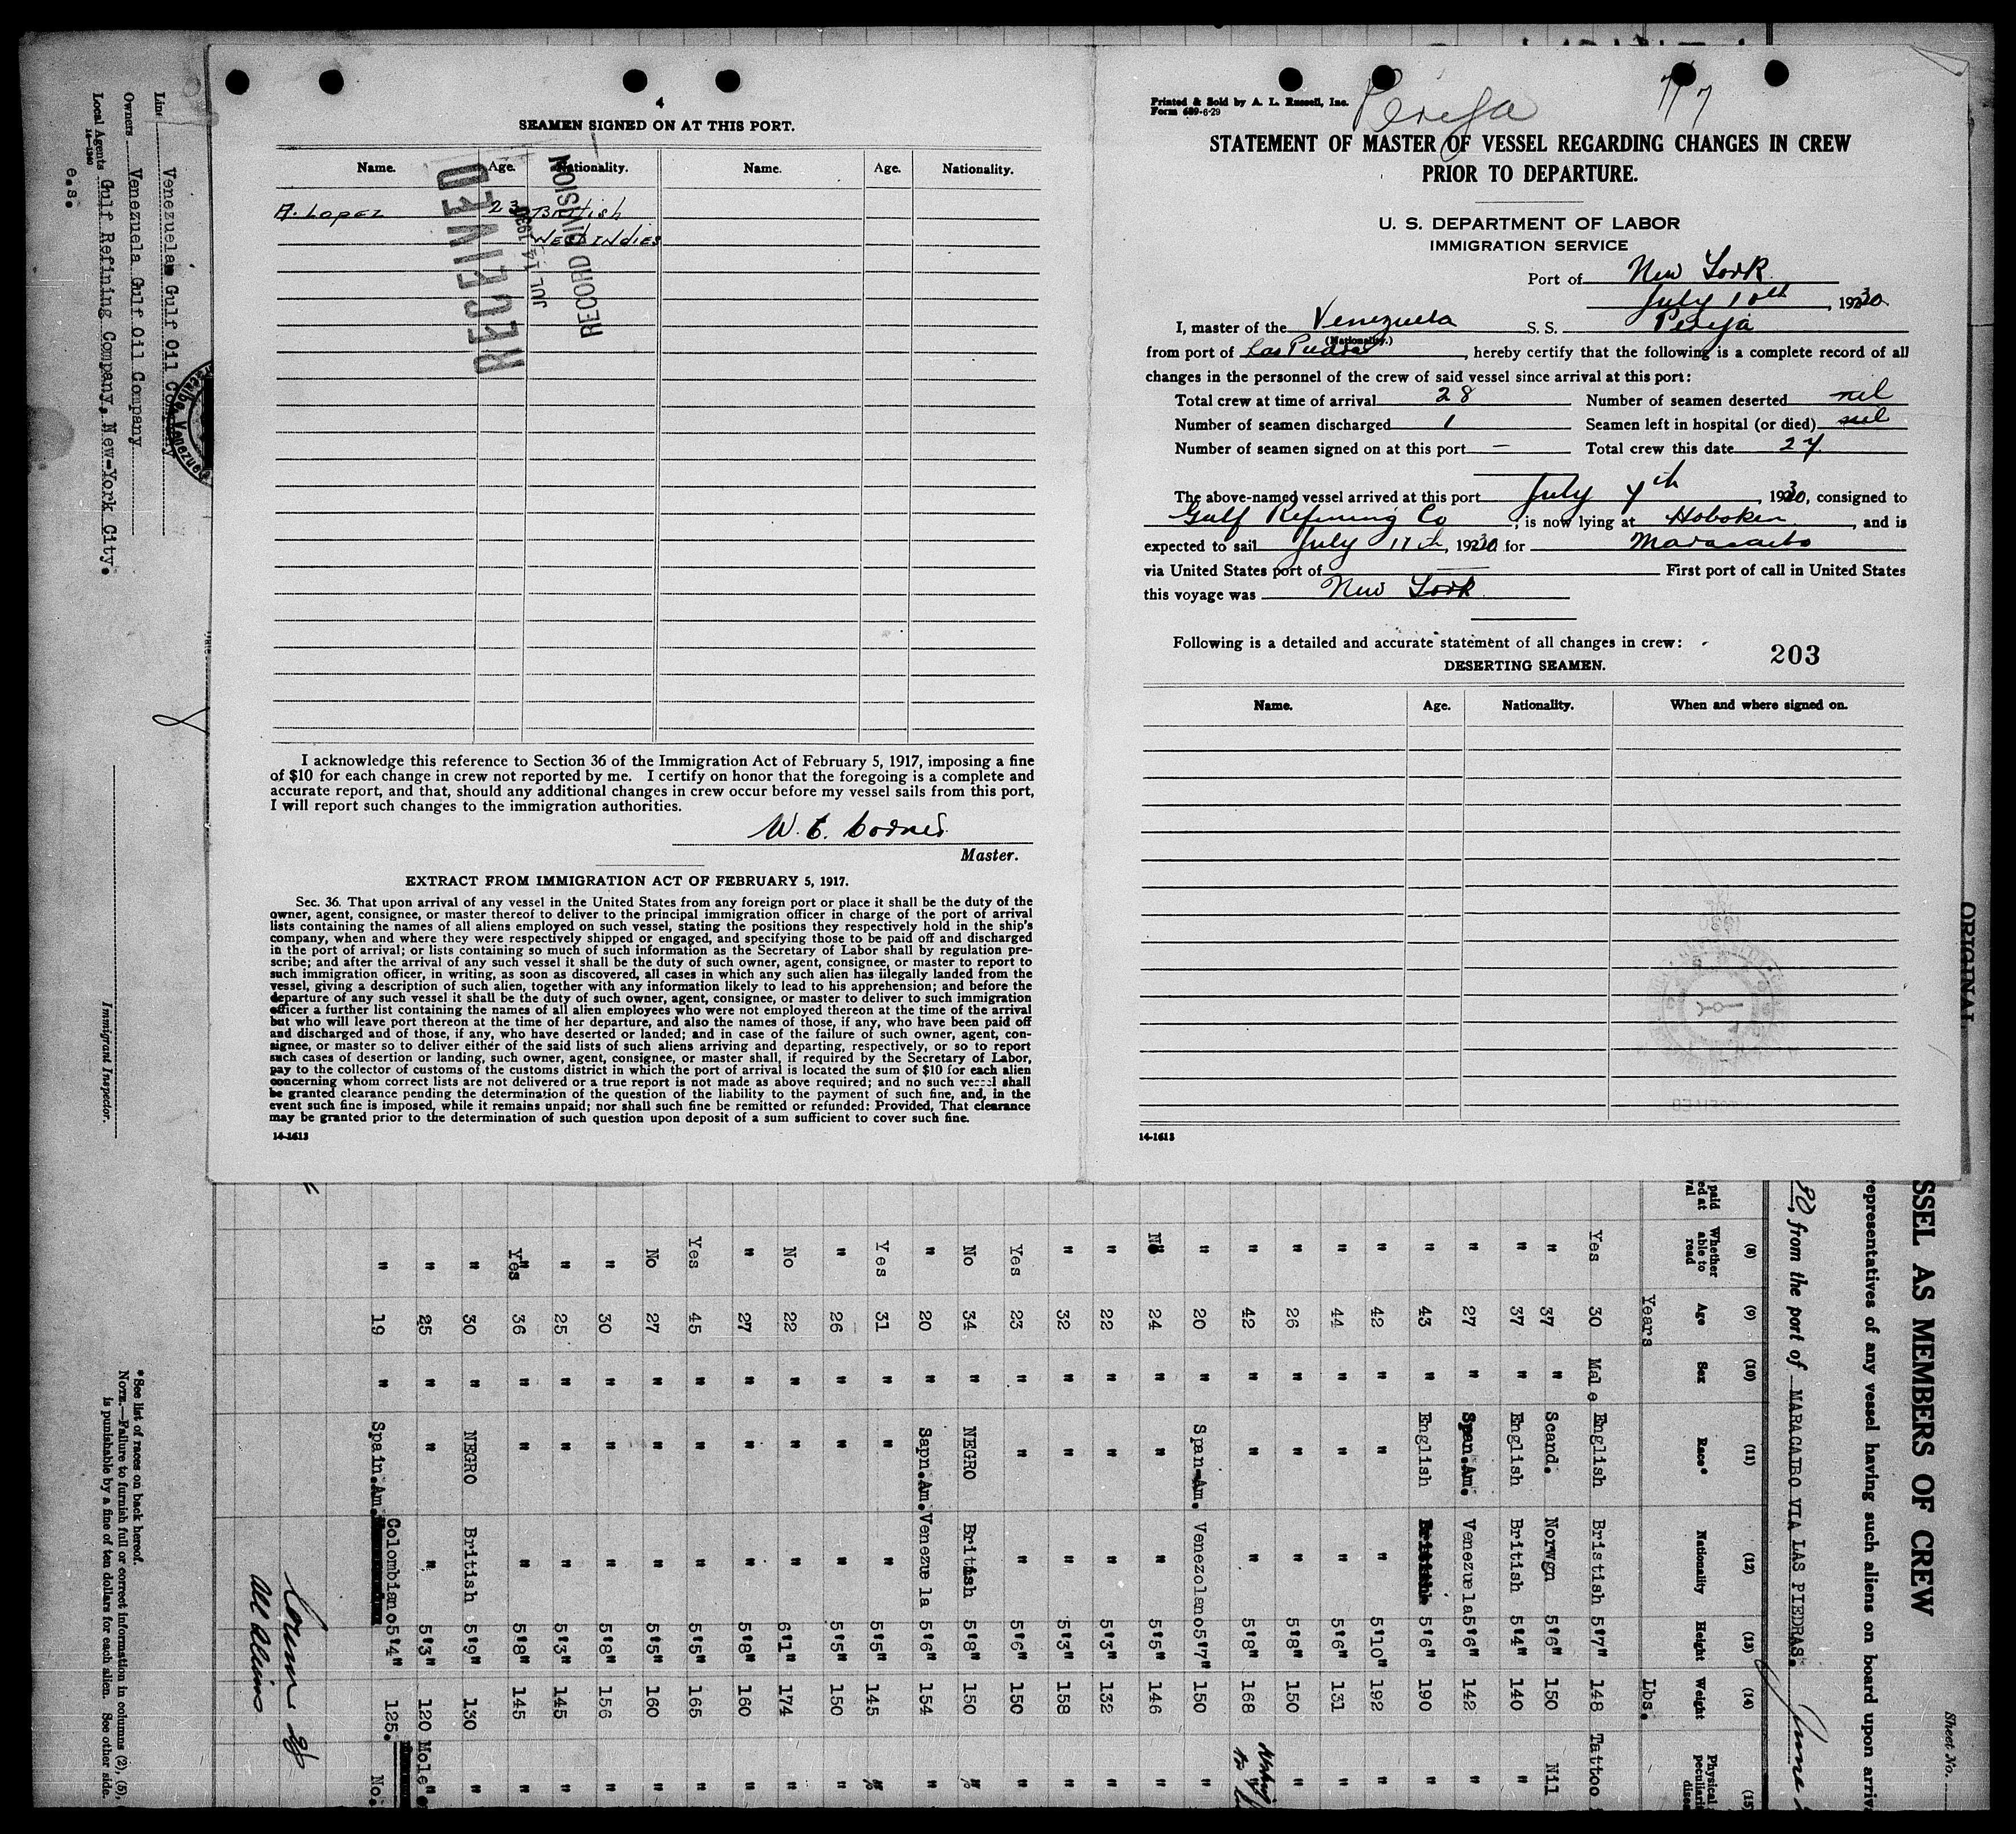 4
SEAMEN SIGNED ON AT THIS PORT.
Name. Age. Nationality. Name. Age. Nationality.
A. Lopez 23 British
West Indies
RECEIVED
JUL 14 1930
RECORD DIVISION
I acknowledge this reference to Section 36 of the Immigration Act of February 5, 1917, imposing a fine
of $10 for each change in crew not reported by me. I certify on honor that the foregoing is a complete and
accurate report, and that, should any additional changes in crew occur before my vessel sails from this port,
I will report such changes to the immigration authorities.
W. E.
Master.
EXTRACT FROM IMMIGRATION ACT OF FEBRUARY 5, 1917.
Sec. 36. That upon arrival of any vessel in the United States from any foreign port or place it shall be the duty of the
owner, agent, consignee, or master thereof to deliver to the principal immigration officer in charge of the port of arrival
lists containing the names of all aliens employed on such vessel, stating the positions they respectively hold in the ship's
company, when and where they were respectively shipped or engaged, and specifying those to be paid off and discharged
in the port of arrival; or lists containing so much of such information as the Secretary of Labor shall by regulation pre-
scribe; and after the arrival of any such vessel it shall be the duty of such owner, agent, consignee, or master to report to
such immigration officer, in writing, as soon as discovered, all cases in which any such alien has illegally landed from the
vessel, giving a description of such alien, together with any information likely to lead to his apprehension; and before the
departure of any such vessel it shall be the duty of such owner, agent, consignee, or master to deliver to such immigration
officer a further list containing the names of all alien employees who were not employed thereon at the time of the arrival
but who will leave port thereon at the time of her departure, and also the names of those, if any, who have been paid off
and discharged and of those, if any, who have deserted or landed; and in case of the failure of such owner, agent, con-
signee, or master so to deliver either of the said lists of such aliens arriving and departing, respectively, or so to report
such cases of desertion or landing, such owner, agent, consignee, or master shall, if required by the Secretary of Labor,
pay to the collector of customs of the customs district in which the port of arrival is located the sum of $10 for each alien
concerning whom correct lists are not delivered or a true report is not made as above required; and no such vessel shall
be granted clearance pending the determination of the question of the liability to the payment of such fine, and, in the
event such fine is imposed, while it remains unpaid; nor shall such fine be remitted or refunded: Provided, That clearance
may be granted prior to the determination of such question upon deposit of a sum sufficient to cover such fine.
14-1613
Printed & Sold by A. L. Russell, Inc.
Form 689-6-29
Perija
STATEMENT OF MASTER OF VESSEL REGARDING CHANGES IN CREW
PRIOR TO DEPARTURE.
U. S. DEPARTMENT OF LABOR
IMMIGRATION SERVICE
Port of New York
July 10th, 1930
I, master of the Venezuela S. S. Perija
(Nationality.)
from port of Las Piedras, hereby certify that the following is a complete record of all
changes in the personnel of the crew of said vessel since arrival at this port:
Total crew at time of arrival 28 Number of seamen deserted nil
Number of seamen discharged 1 Seamen left in hospital (or died) nil
Number of seamen signed on at this port — Total crew this date 27
The above-named vessel arrived at this port July 7th, 1930, consigned to
Gulf Refining Co, is now lying at Hoboken, and is
expected to sail July 11th, 1930 for Maracaibo
via United States port of First port of call in United States
this voyage was New York
Following is a detailed and accurate statement of all changes in crew:
203
DESERTING SEAMEN.
Name. Age. Nationality. When and where signed on.
14-1613
ORIGINAL
Line Venezuela Gulf Oil Company
Owners Venezuela Gulf Oil Company
Local Agents Gulf Refining Company, New-York City.
14-1240
e.s.
Immigrant Inspector.
*See list of races on back hereof.
NOTE.—Failure to furnish full or correct information in columns (2), (5),
is punishable by a fine of ten dollars for each alien. See other side.
Sheet No.
SSEL AS MEMBERS OF CREW
epresentatives of any vessel having such aliens on board upon arriv
, from the port of MARACAIBO VIA LAS PIEDRAS. June
(8) (9) (10) (11) (12) (13) (14) (15)
Whether able to read Age Sex Race* Nationality Height Weight Physical
Years Lbs.
Yes 30 Male English Bristish 5'7" 148 Tattoo
" 37 " Scand. Norwgn 5'6" 150 Nil
" 37 " English British 5'4" 140 "
" 27 " Span.Am. Venezuela 5'6" 142 "
" 43 " English British 5'6" 190 "
" 42 " " " 5'10" 192 "
" 44 " " " 5'6" 131 "
" 26 " " " 5'8" 150 "
" 42 " " " 5'8" 168
" 20 " Span-Am. Venezolano 5'7" 150 "
No 24 " " " 5'5" 146 "
" 22 " " " 5'3" 132 "
" 32 " " " 5'3" 158 "
Yes 23 " " " 5'6" 150 "
No 34 " NEGRO British 5'8" 150 "
" 20 " Sapn.Am. Venezuela 5'6" 154 "
Yes 31 " " " 5'5" 145 "
" 26 " " " 5'5" 150 "
No 22 " " " 6'1" 174 "
" 27 " " " 5'8" 160 "
Yes 45 " " " 5'5" 165 "
No 27 " " " 5'5" 160 "
" 30 " " " 5'8" 156 "
" 25 " " " 5'3" 145 "
Yes 36 " " " 5'8" 145 "
" 30 " NEGRO British 5'9" 130 "
" 25 " " " 5'3" 120 Mole
" 19 " Spain.Am. Colombiano 5'4" 125. No.
All Aliens